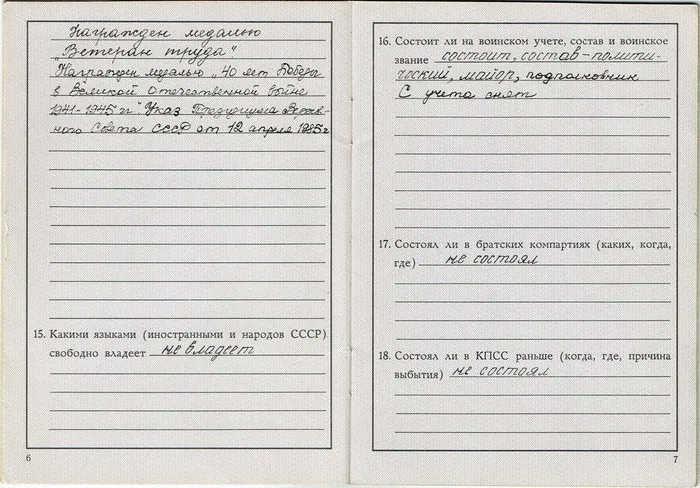 Награжден медалью
"Ветеран труда"
Награжден медалью „40 лет Победы
в Великой Отечественной войне
1941-1945 гг". Указ Президиума Верхов-
ного Совета СССР от 12 апреля 1985 г
15. Какими языками (иностранными и народов СССР)
свободно владеет не владеет
6
16. Состоит ли на воинском учете, состав и воинское
звание состоит, состав-полити-
ческий, майор, подполковник
С учета снят
17. Состоял ли в братских компартиях (каких, когда,
где) не состоял
18. Состоял ли в КПСС раньше (когда, где, причина
выбытия) не состоял
7